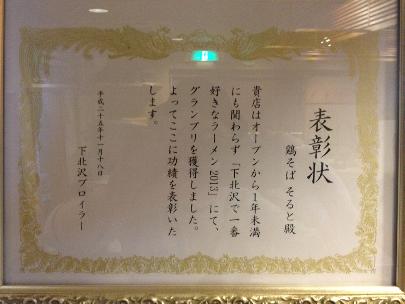 表彰状
鶏そば そると殿
貴店はオープンから1年未満
にも関わらず「下北沢で一番
好きなラーメン2013」にて、
グランプリを獲得しました。
よってここに功績を表彰いた
します。
平成二十五年十一月十八日
下北沢ブロイラー